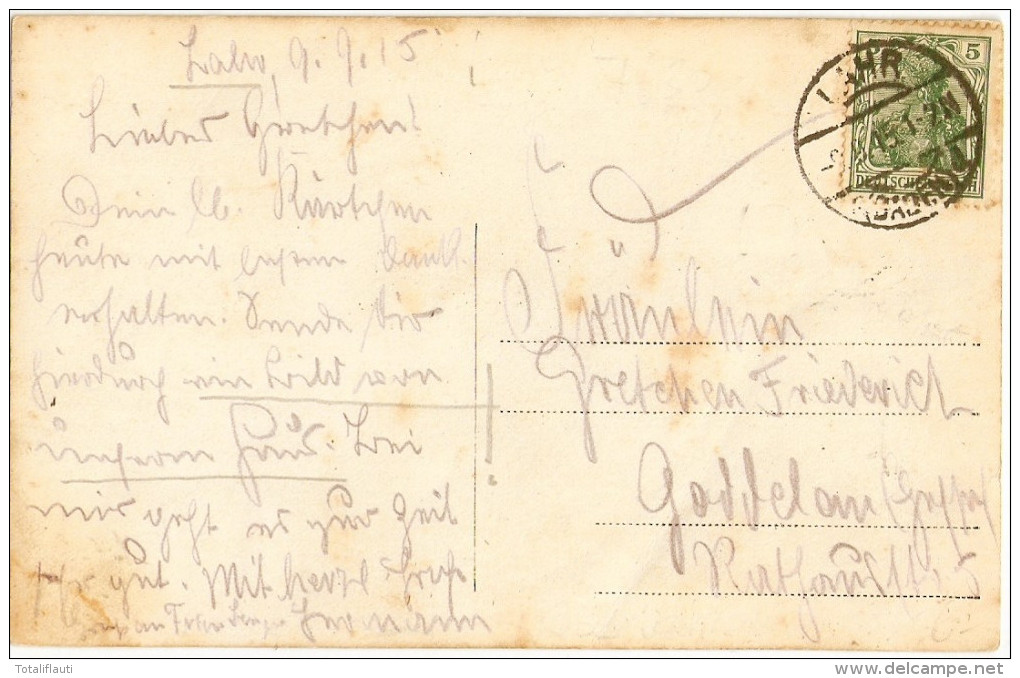 Lahr, 9.9.15
Liebes Gretchen!
Dein lb. Kärtchen
heute mit bestem Dank
erhalten. Sende Dir
hierdurch ein Bild von
unserm Haus. Bei
mir geht es zur Zeit
gut. Mit herzl. Gruß
Hermann
Fräulein
Gretchen Friederich
Goddelau (Hessen)
Rathausstr. 5
LAHR
(BADEN)
5
DEUTSCHES REICH
Totaliflauti
delcampe.net